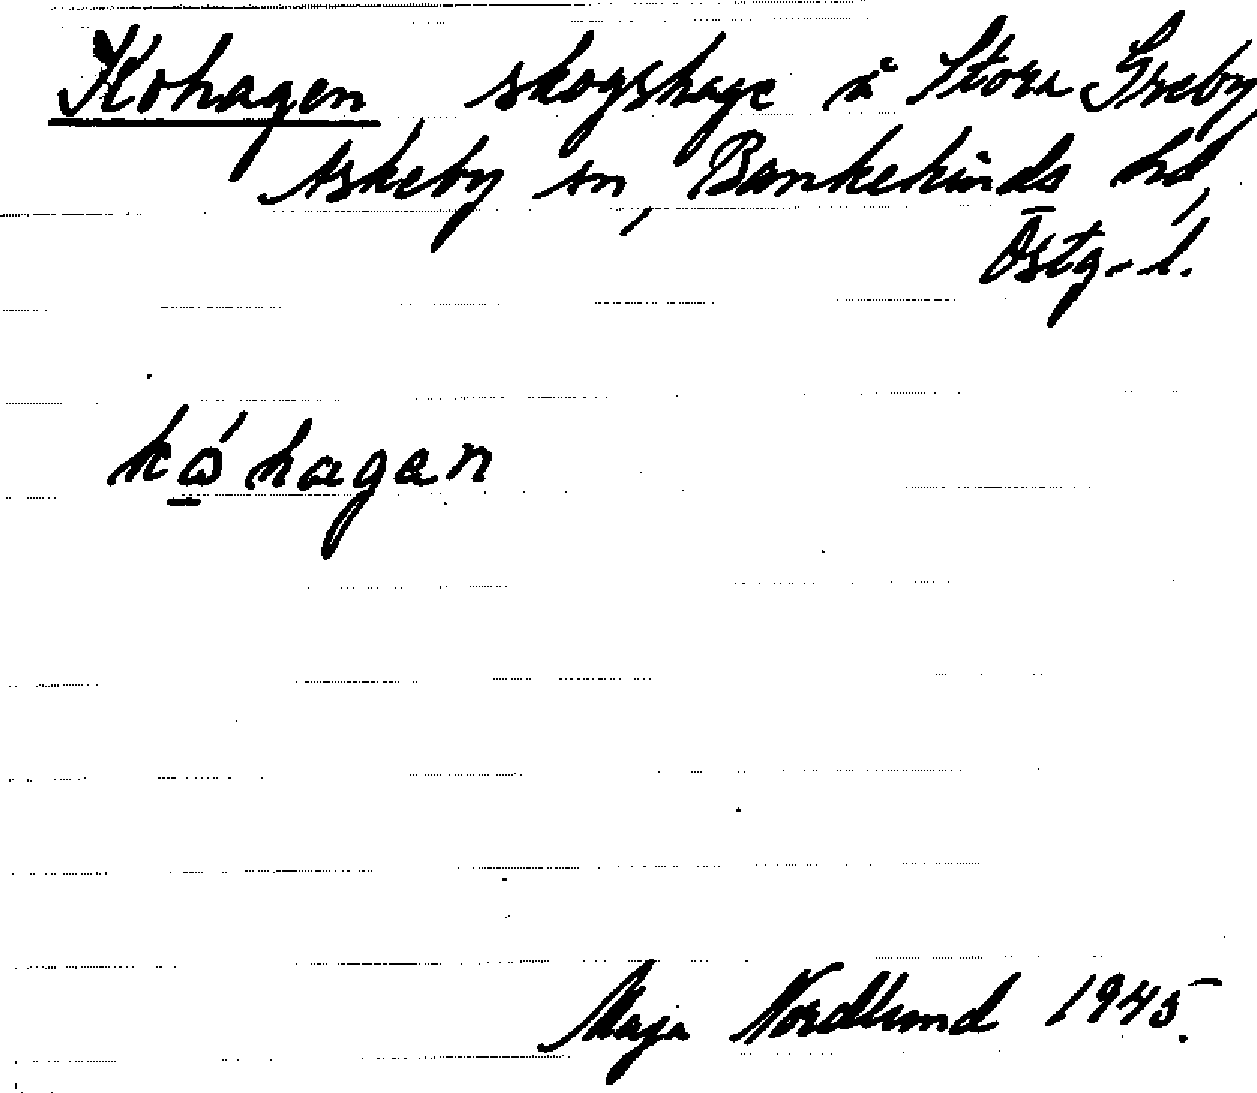 Kohagen skogshage å Stora Greby
Askeby sn, Bankekinds hd,
Östg. l.
kǫ́hagan
Maja Nordlund 1945.